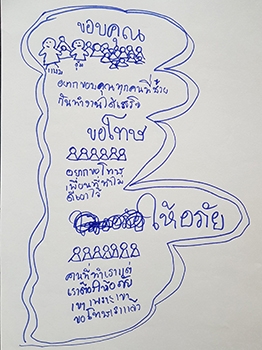 ขอบคุณ
อยากขอบคุณทุกคนที่ช่วย
กันทำงานให้เสร็จ
ขอโทษ
อยากขอโทษ
เพื่อนที่ทำไม่
ดีเอาไว้
ให้อภัย
คนที่ทำเราแต่
เราต้องให้อภัย
เขาเพราะเขา
ขอโทษเราแล้ว